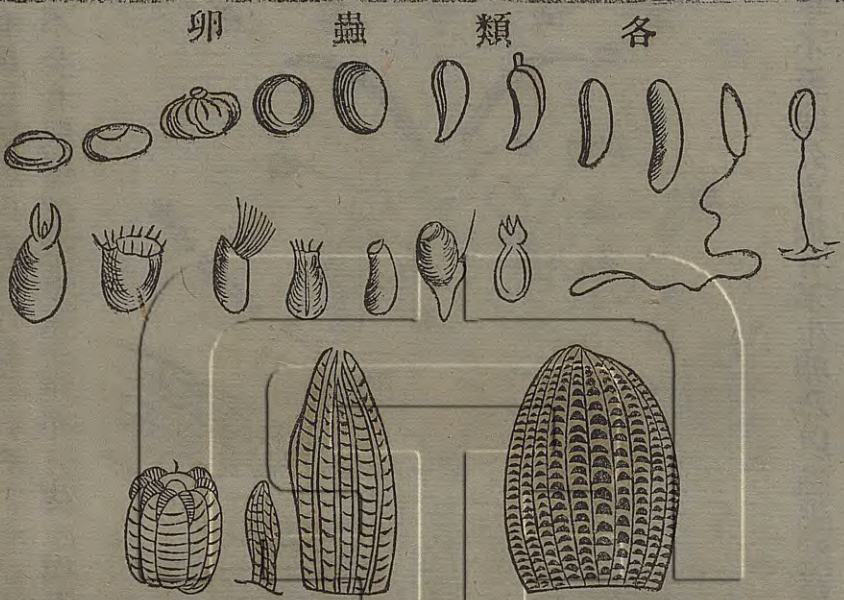 各類蟲卵